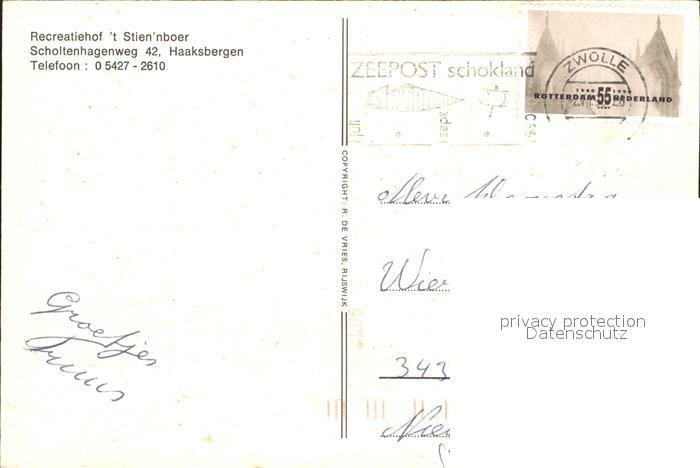 Recreatiehof 't Stien'nboer
Scholtenhagenweg 42, Haaksbergen
Telefoon : 0 5427 - 2610
ZEEPOST schokland
juli
ZWOLLE
1940 55 1990
ROTTERDAM CENT NEDERLAND
COPYRIGHT: R. DE VRIES, RIJSWIJK
Mevr
Wier
343
Nieu
Groetjes
Truus
privacy protection
Datenschutz